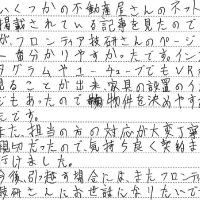 いくつかの不動産屋さんのネット
掲載されている記事を見たので
が、フロンティア技研さんのページ
一番分かりやすかったです。イン
タグラムやユーチューブでもVR
見ることが出来、家具の設置のイ
ジもあったので物件を決めやす
たです。
また、担当の方の対応が大変丁寧
親切だったので、気持ち良く契約ま
行けました。
今後、引っ越す場合には、またフロンテ
技研さんにお世話になりたいで